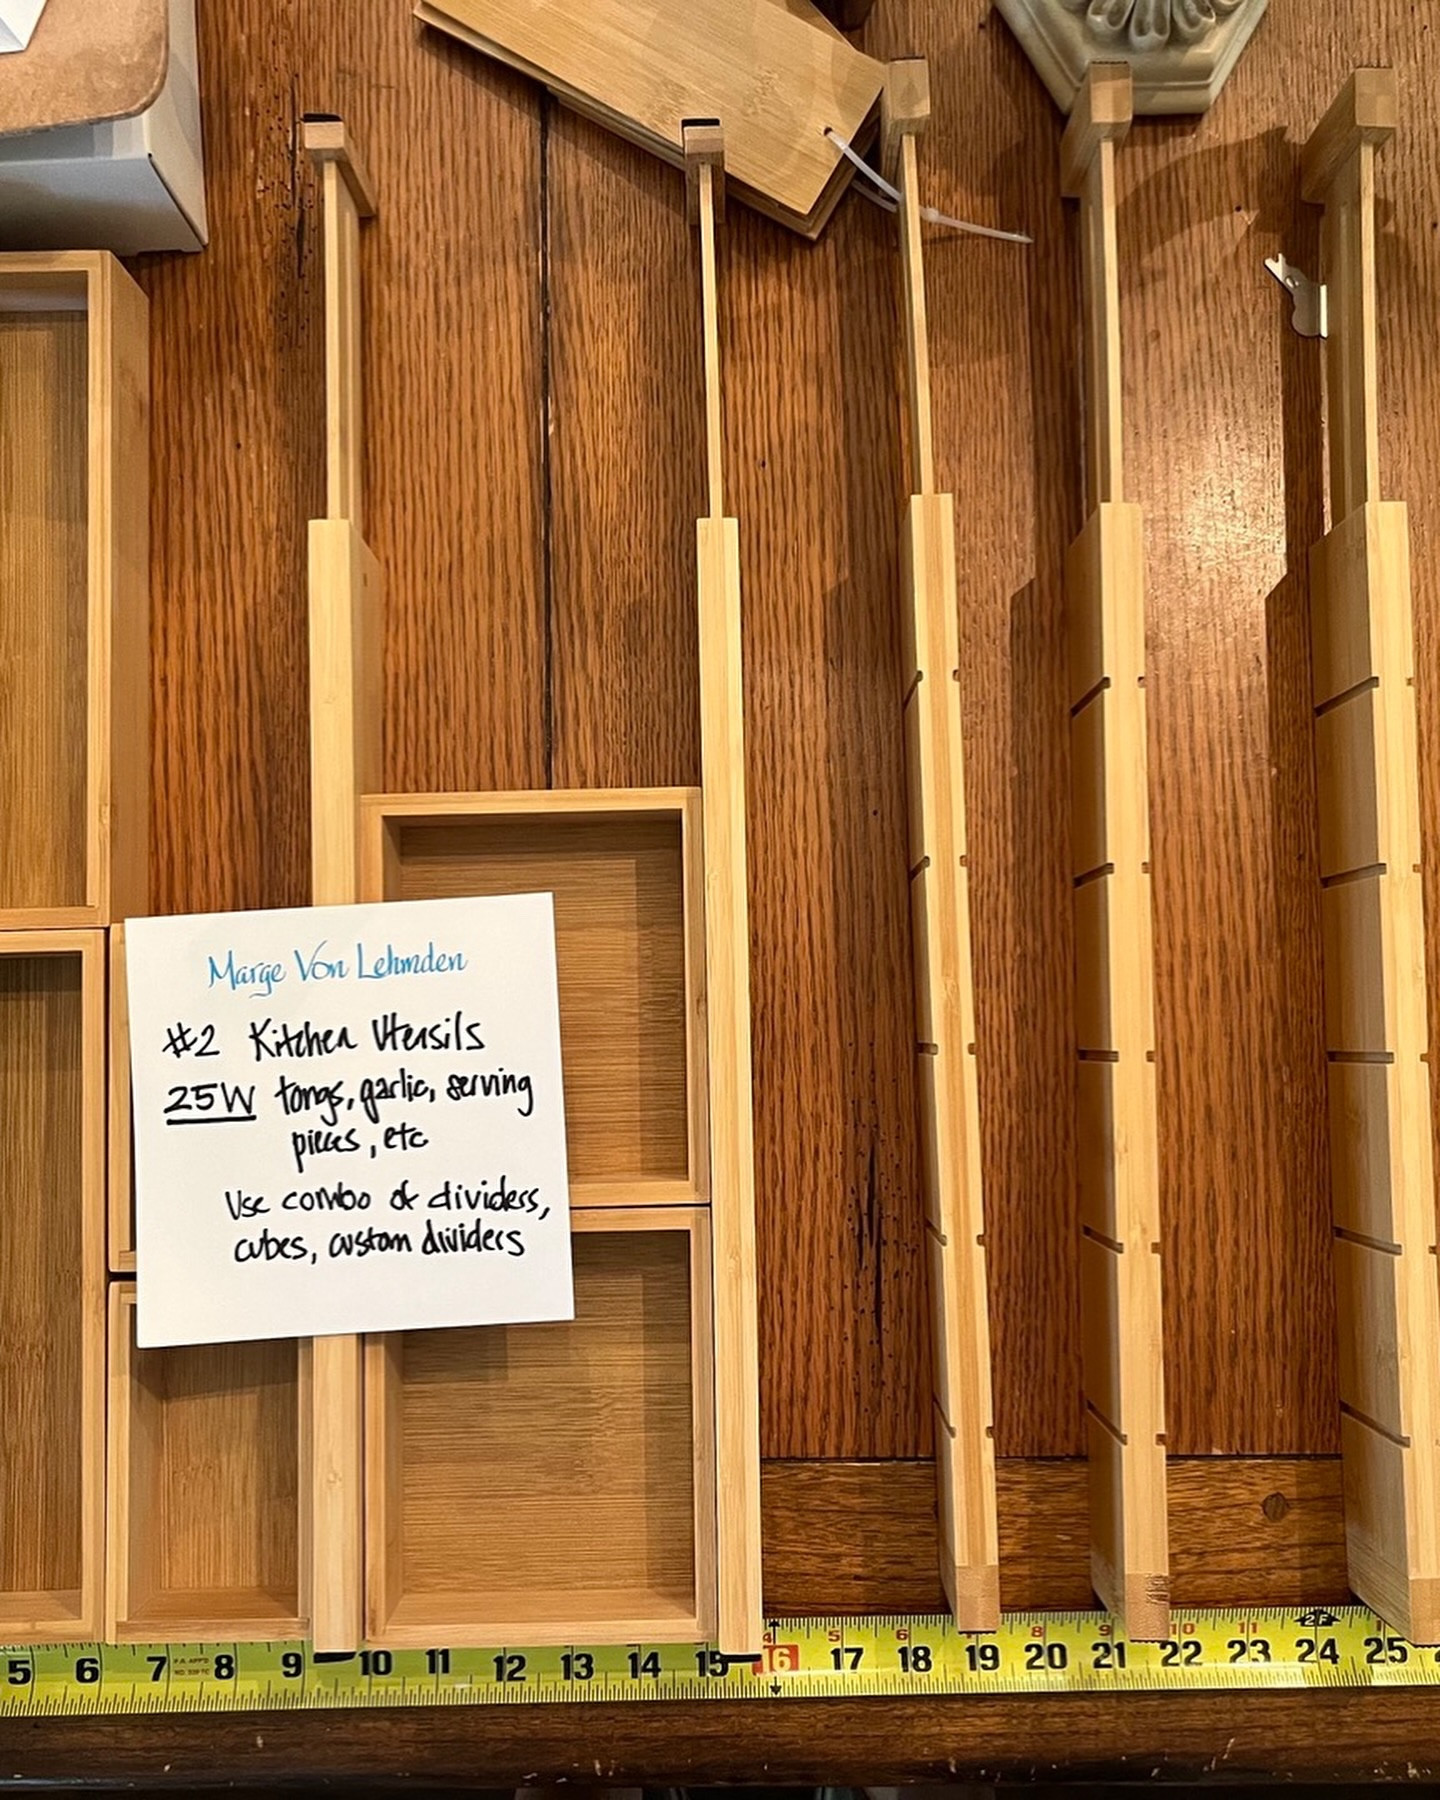 Marge Von Lehmden
#2 Kitchen Utensils
25W tongs, garlic, serving
pieces, etc
Use combo of dividers,
cubes, custom dividers
4 5 6 7 8 9 10 11 22
5 6 7 8 9 10 11 12 13 14 15 16 17 18 19 20 21 22 23 24 25
2F